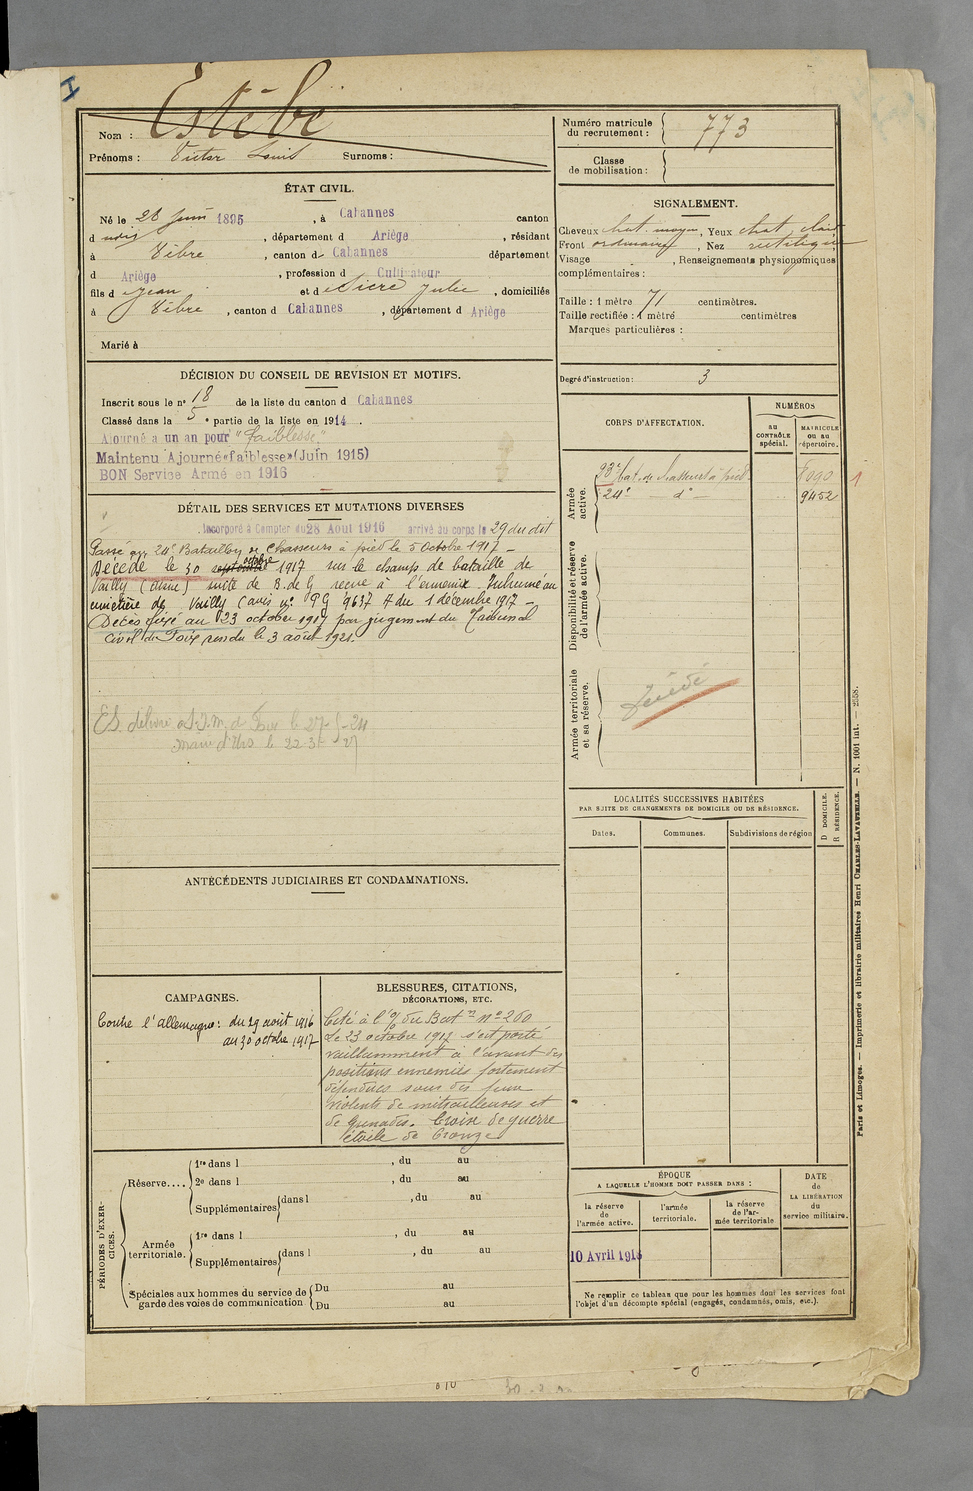 Nom : Estèbe
Prénoms : Victor Louis Surnoms :
ÉTAT CIVIL.
Né le 26 juin 1895, à Cabannes canton
d udit, département d Ariège, résidant
à Vèbre, canton de Cabannes département
d Ariège, profession d Cultivateur
fils d Jean et de Sicre Julie, domiciliés
à Vèbre, canton d Cabannes, département d Ariège
Marié à
DÉCISION DU CONSEIL DE REVISION ET MOTIFS.
Inscrit sous le n° 18 de la liste du canton d Cabannes
Classé dans la 5e partie de la liste en 1914.
Ajourné à un an pour "faiblesse"
Maintenu Ajourné «faiblesse» (Juin 1915)
BON Service Armé en 1916
DÉTAIL DES SERVICES ET MUTATIONS DIVERSES
Incorporé à Compter du 28 Aout 1916 arrivé au corps le 29 du dit
Passé au 24e Bataillon de Chasseurs à pied le 5 Octobre 1917 –
Décédé le 30 septembre octobre 1917 sur le champ de bataille de
Vailly (Aisne) suite de B. de G reçue à l'ennemi. Inhumé au
cimetière de Vailly (avis n° PG 9637 du 1 décembre 1917 –
Décès fixé au 23 octobre 1917 par jugement du Tribunal
Civil de Foix rendu le 3 août 1921.
le 27-
le 22-3-
ANTÉCÉDENTS JUDICIAIRES ET CONDAMNATIONS.
CAMPAGNES.
Contre l'allemagne : du 29 août 1916
au 30 octobre 1917
BLESSURES, CITATIONS,
DÉCORATIONS, ETC.
Cité à l'O/ du Bat.on n° 200
Le 23 octobre 1917 s'est porté
vaillamment à l'assaut des
positions ennemies fortement
défendues sous des feux
violents de mitrailleuses et
de grenades. Croix de guerre
étoile de bronze
PÉRIODES D'EXERCICES.
Réserve....
1re dans l , du au
2e dans l , du au
Supplémentaires dans l , du au
Armée territoriale.
1re dans l , du au
Supplémentaires dans l , du au
Spéciales aux hommes du service de garde des voies de communication
Du au
Du au
Numéro matricule du recrutement : 773
Classe de mobilisation :
SIGNALEMENT.
Cheveux chat. moyen, Yeux chat. clair
Front ordinaire, Nez rectiligne
Visage , Renseignements physionomiques
complémentaires :
Taille : 1 mètre 71 centimètres.
Taille rectifiée : 1 mètre centimètres
Marques particulières :
Degré d'instruction : 3
CORPS D'AFFECTATION.
NUMÉROS
au CONTRÔLE spécial.
MATRICULE ou au répertoire.
Armée active.
23e bat. de chasseurs à pied
24e — d° — 9452
Disponibilité et réserve de l'armée active.
Armée territoriale et sa réserve.
LOCALITÉS SUCCESSIVES HABITÉES
PAR SUITE DE CHANGEMENTS DE DOMICILE OU DE RÉSIDENCE.
Dates. Communes. Subdivisions de région
D DOMICILE.
R RÉSIDENCE.
ÉPOQUE
A LAQUELLE L'HOMME DOIT PASSER DANS :
la réserve de l'armée active.
l'armée territoriale.
la réserve de l'armée territoriale
DATE de LA LIBÉRATION du service militaire.
10 Avril 1918
Ne remplir ce tableau que pour les hommes dont les services font
l'objet d'un décompte spécial (engagés, condamnés, omis, etc.).
Paris et Limoges. — Imprimerie et librairie militaires Henri CHARLES-LAVAUZELLE. — N. 1001 int. — 2558.